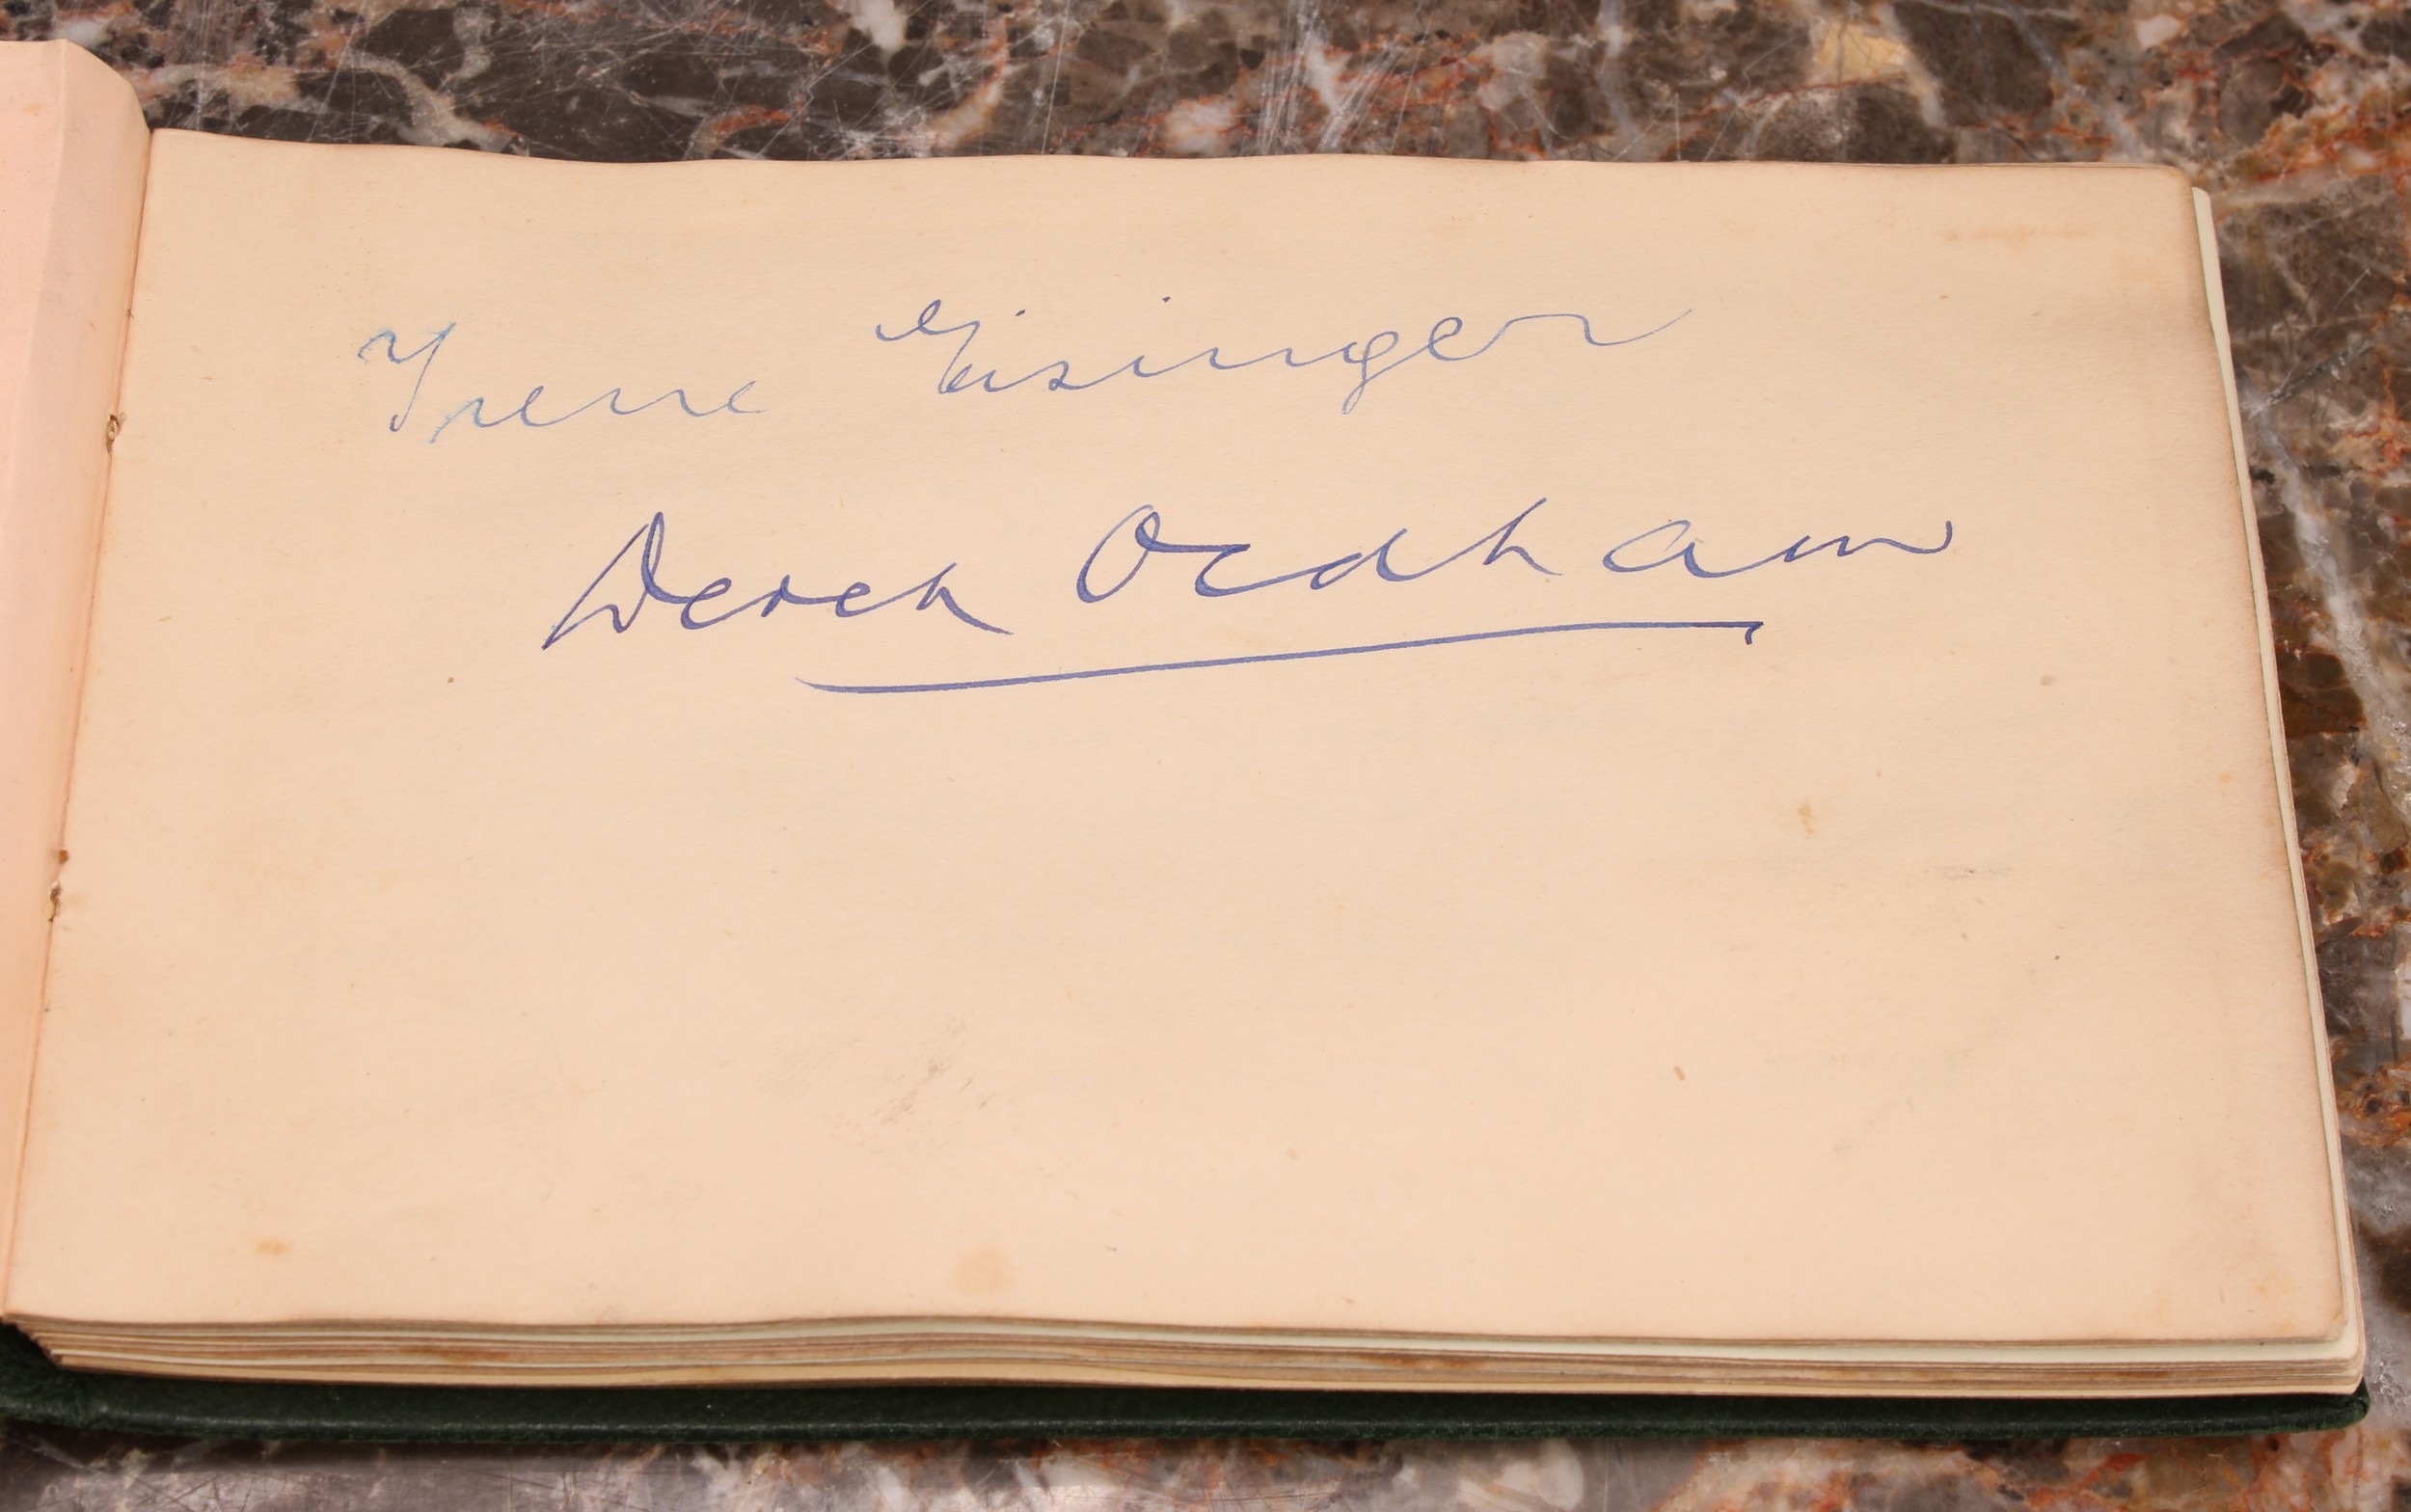 Irene Eisinger
Derek Oldham